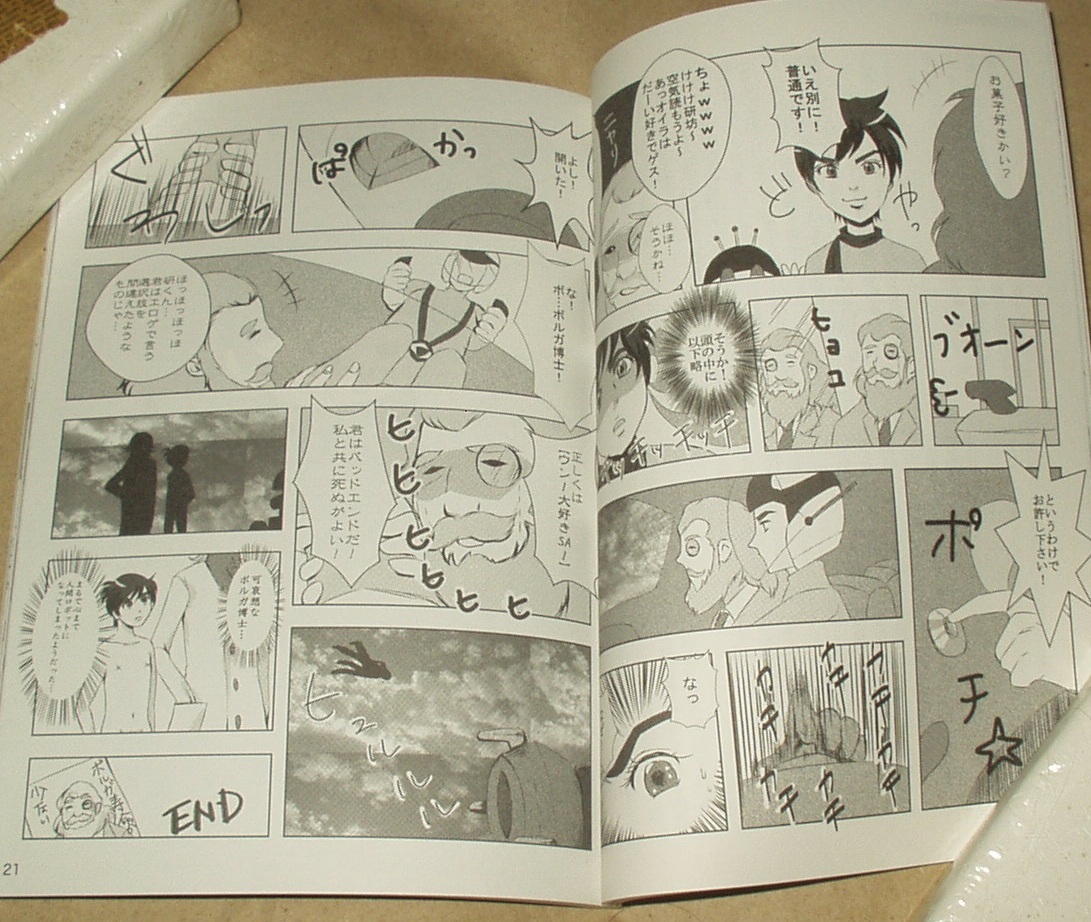 お菓子好きかい？
いえ別に！
普通です！
どやっ
ちょｗｗｗｗ
けけけ研坊～
空気読もうよ～
あっオイラは
だーい好きでゲス！
ニヤリ
ほほ…
そうかね…
ブオーン
ヒョコ
そうか！
頭の中に
以下略
チッチッチッ
というわけで
お許し下さい！
ポチ☆
ガチ
ガチ
ガチ
ガチ
ガチ
ガチ
なっ
よし！
開いた！
かっ
ぱ
わしっ
な！
ボ…ボルガ博士！
ほっほっほっほ
研くん…
君はエロゲで言う
選択肢を
間違えたような
ものじゃ…
正しくは
「ウン！大好きSA！」
ヒ
ヒ
ヒ
ヒ
ヒ
ヒ
ヒ
君はバッドエンドだ！
私と共に死ぬがよい！
ヒュルルルル
可哀想な
ボルガ博士…
まるで心まで
人間ロボットに
なってしまったようだった…
END
21